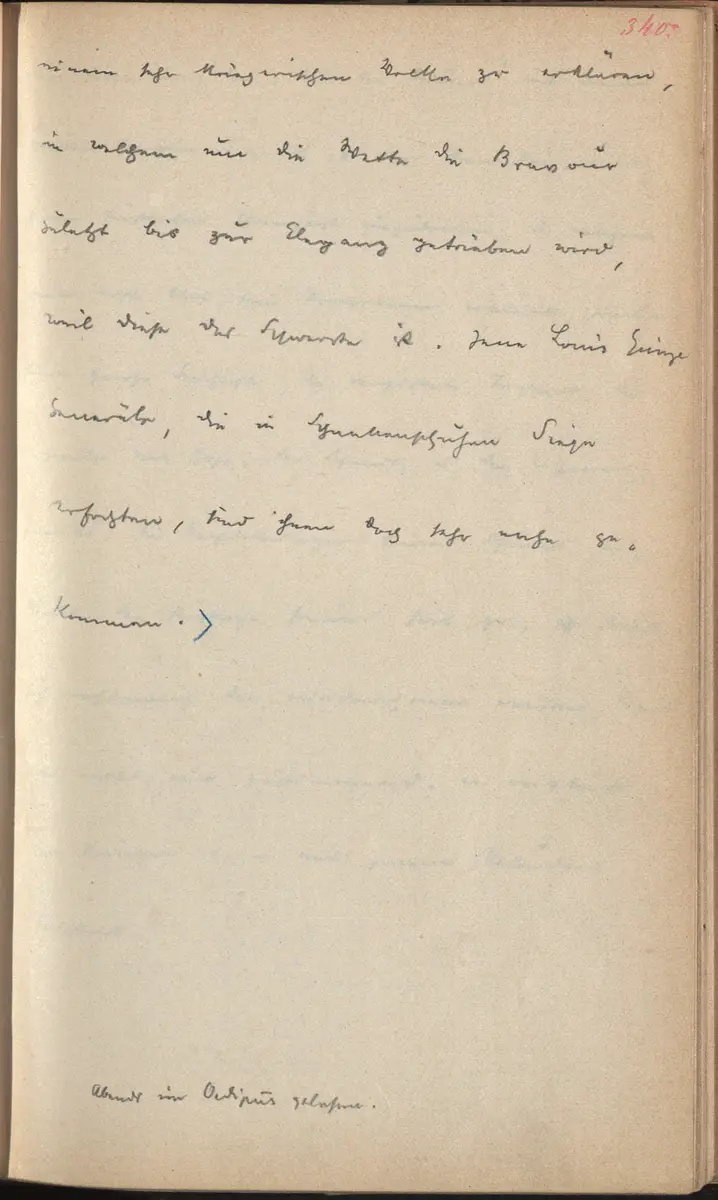 340.
einem sehr kriegerischen Volke zu erklären,
in welchem um die Wette die Bravour
zuletzt bis zur Eleganz getrieben wird,
weil diese das Schwerste ist. Jene Louis
Generäle, die in Schnallenschuhen Siege
erfochten, sind ihnen doch sehr nahe ge-
kommen.
Abends im Oedipus gelesen.